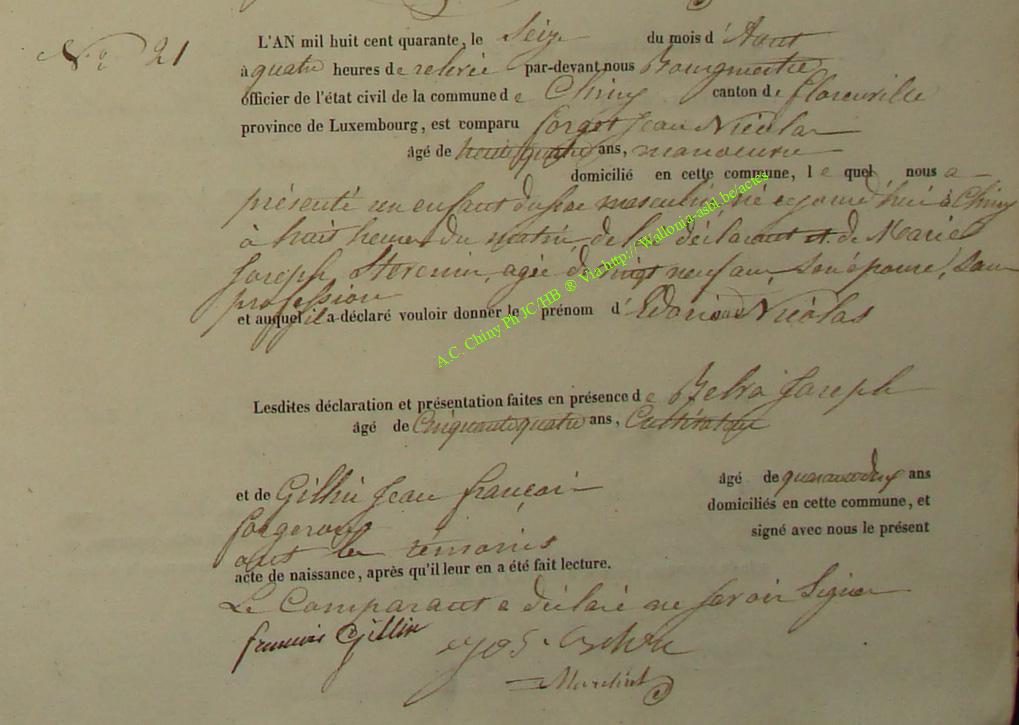 Nº 21
L'AN mil huit cent quarante, le Seize du mois d' Aout
à quatre heures de relevée par-devant nous Bourgmestre
officier de l'état civil de la commune de Chiny canton de florenville
province de Luxembourg, est comparu forget Jean Nicolas
âgé de trente quatre ans, manoeuvre
domicilié en cette commune, le quel nous a
présenté un enfant du sexe masculin, né ce jourd'hui à Chiny
à huit heures du matin, de lui déclarant et de Marie
Joseph, agée de vingt neuf ans son épouse, sans
profession
et auquel il a déclaré vouloir donner le prénom d' Nicolas
Lesdites déclaration et présentation faites en présence de Joseph
âgé de Cinquante quatre ans, Cultivateur
et de Gillin Jean françois âgé de quarante deux ans
forgeron domiciliés en cette commune, et
ont les témoins signé avec nous le présent
acte de naissance, après qu'il leur en a été fait lecture.
Le Comparant a déclaré ne savoir Signer
francois Gillin
A.C. Chiny Ph JC/HB ® Via http://Wallonia-asbl.be/actes